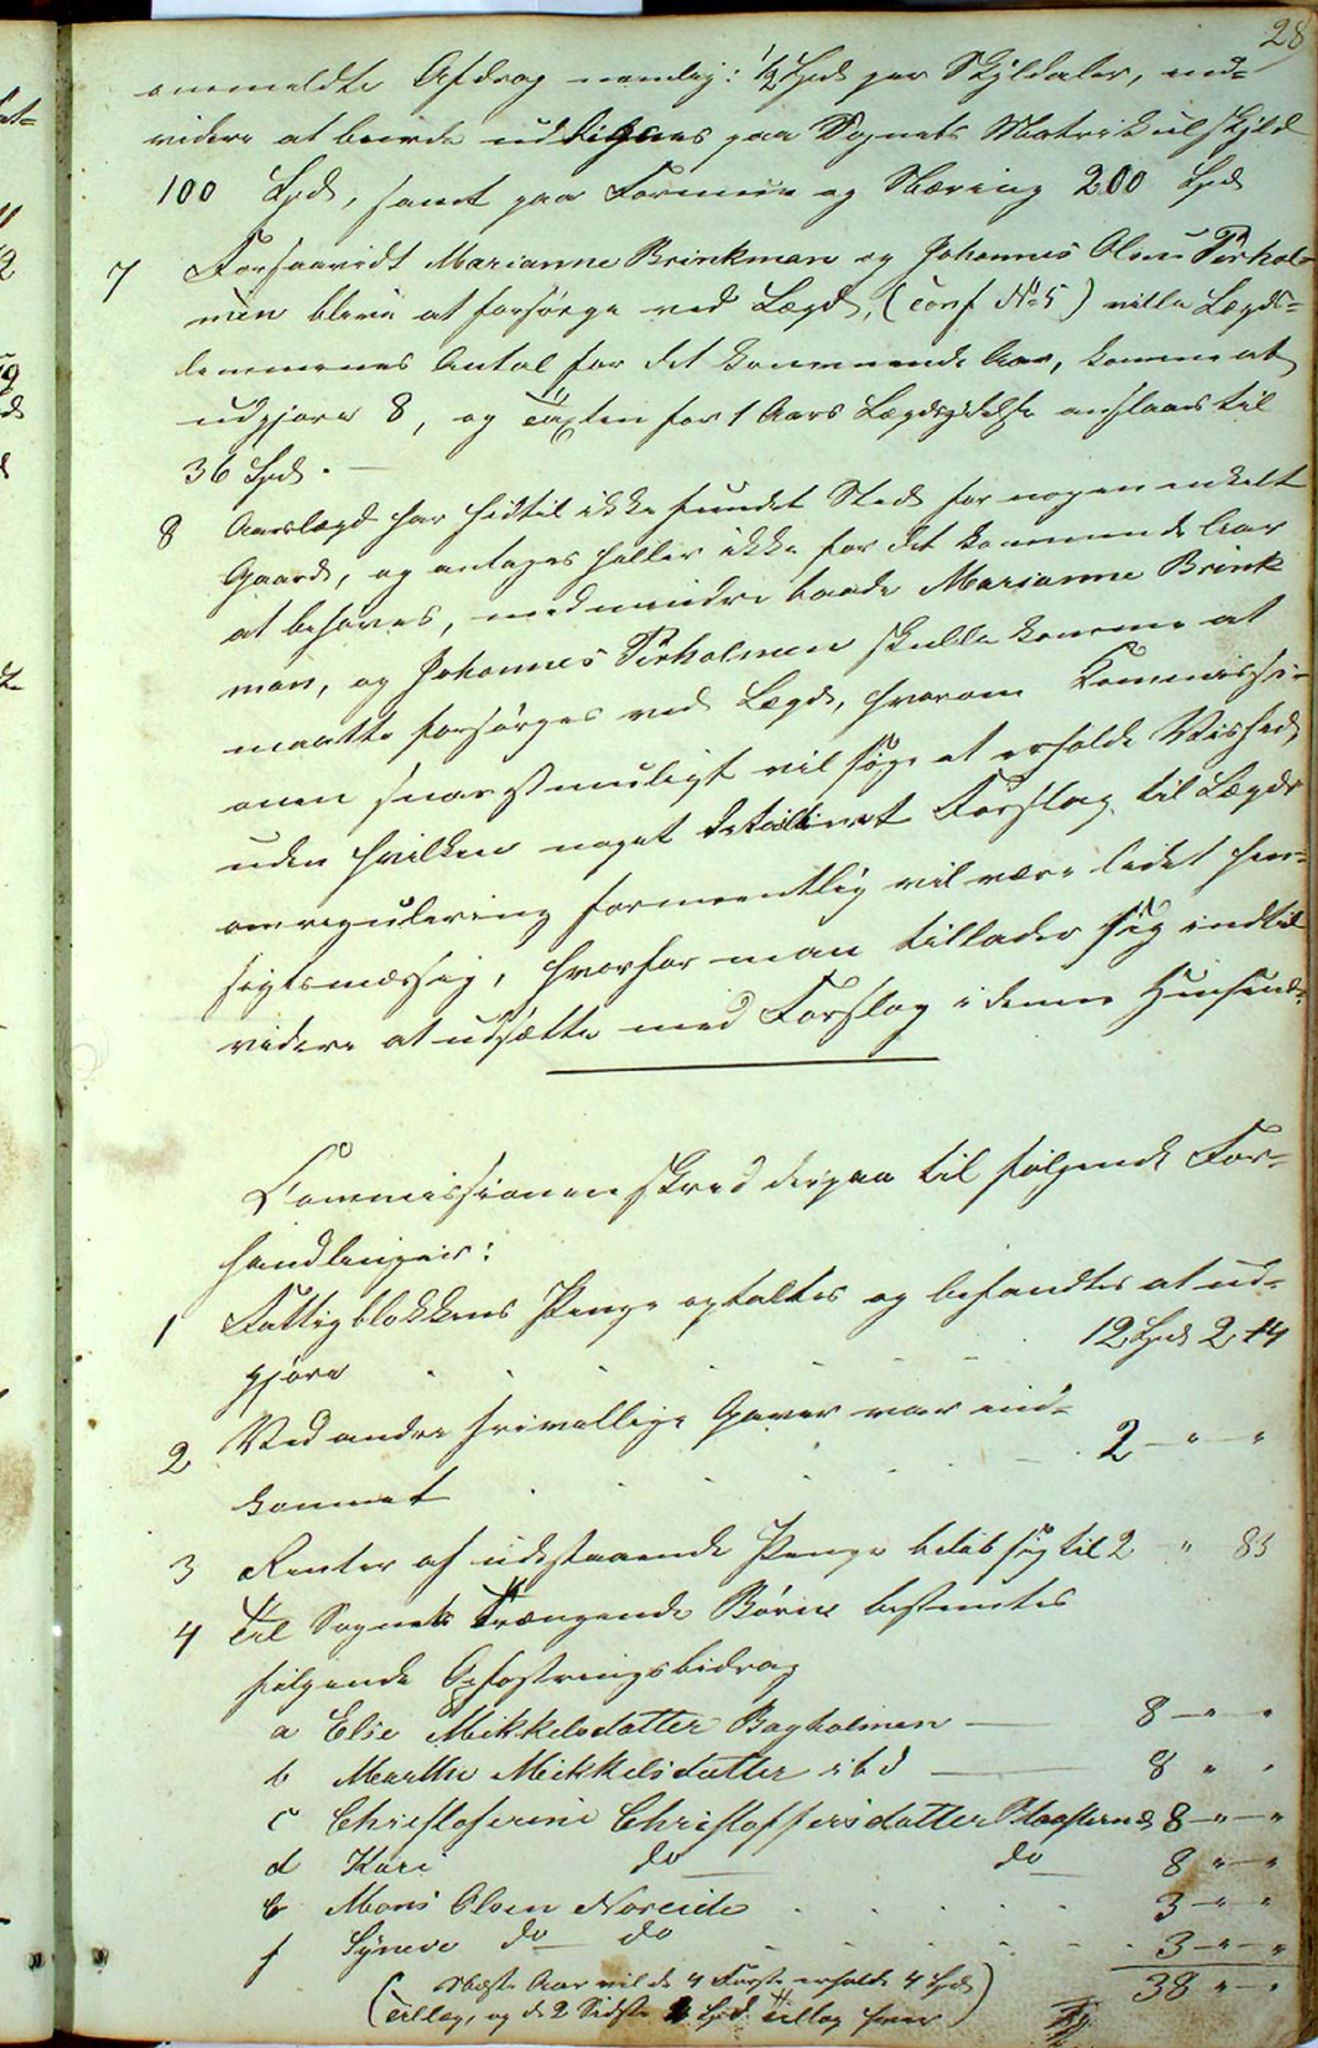 28
anmeldte Afdrag nemlig: 1/2 Spd per Skyldaler, end-
videre at burde udlignes paa Sognets Matrikulskyld
100 Spd, samt paa Formue og Næring 200 Spd
7 Forsaavidt Marianne Brinkman og Johannes Olsen Pirhol-
men blive at forsørge ved Lægd, (conf No 5) ville Lægds-
lemmernes Antal for det kommende Aar, komme at
udgjøre 8, og Taxten for 1 Aars Lægdsydelse anslaaes til
36 Spd. —
8 Aarslægd har hidtil ikke fundet Sted for nogen enkelt
Gaard, og antages heller ikke for det kommende Aar
at behøves, medmindre baade Marianne Brink-
man, og Johannes Pirholmen skulle komme at
maatte forsørges ved Lægd, hvorom Commissi-
onen snarest muligt vil søge at erholde Vished,
uden hvilken noget detailleret Forslag til Lægds
omregulering formeentlig vil være lidet hen-
sigtsmæssig, hvorfor man tillader sig indtil
videre at udsætte med Forslag i denne Henseende.
Commissionen skred derpaa til følgende For-
handlinger:
1 Fattigblokkens Penge optaltes og befandtes at ud-
gjøre 12 Spd 2 14
2 Ved andre frivillige Gaver var ind-
kommet 2 — " — "
3 Renter af udestaaende Penge beløb sig til 2 " 83
4 Til Sognets Trængende Børn bestemtes
følgende Opfostringsbidrag
a Else Mikkelsdatter Bagholmen — 8 — " "
b Marthe Mikkelsdatter ibd — 8 " "
c Christoferine Christoffersdatter 8 — " — "
d Kari do do 8 " — "
e Mons Olsen Noreide 3 — " "
f Syneve do do 3 — " — "
38 " — "
(Næste Aar vil de 4 Første erholde 4 Spd
Tillæg, og de 2 Sidste Spd Tillæg hver)